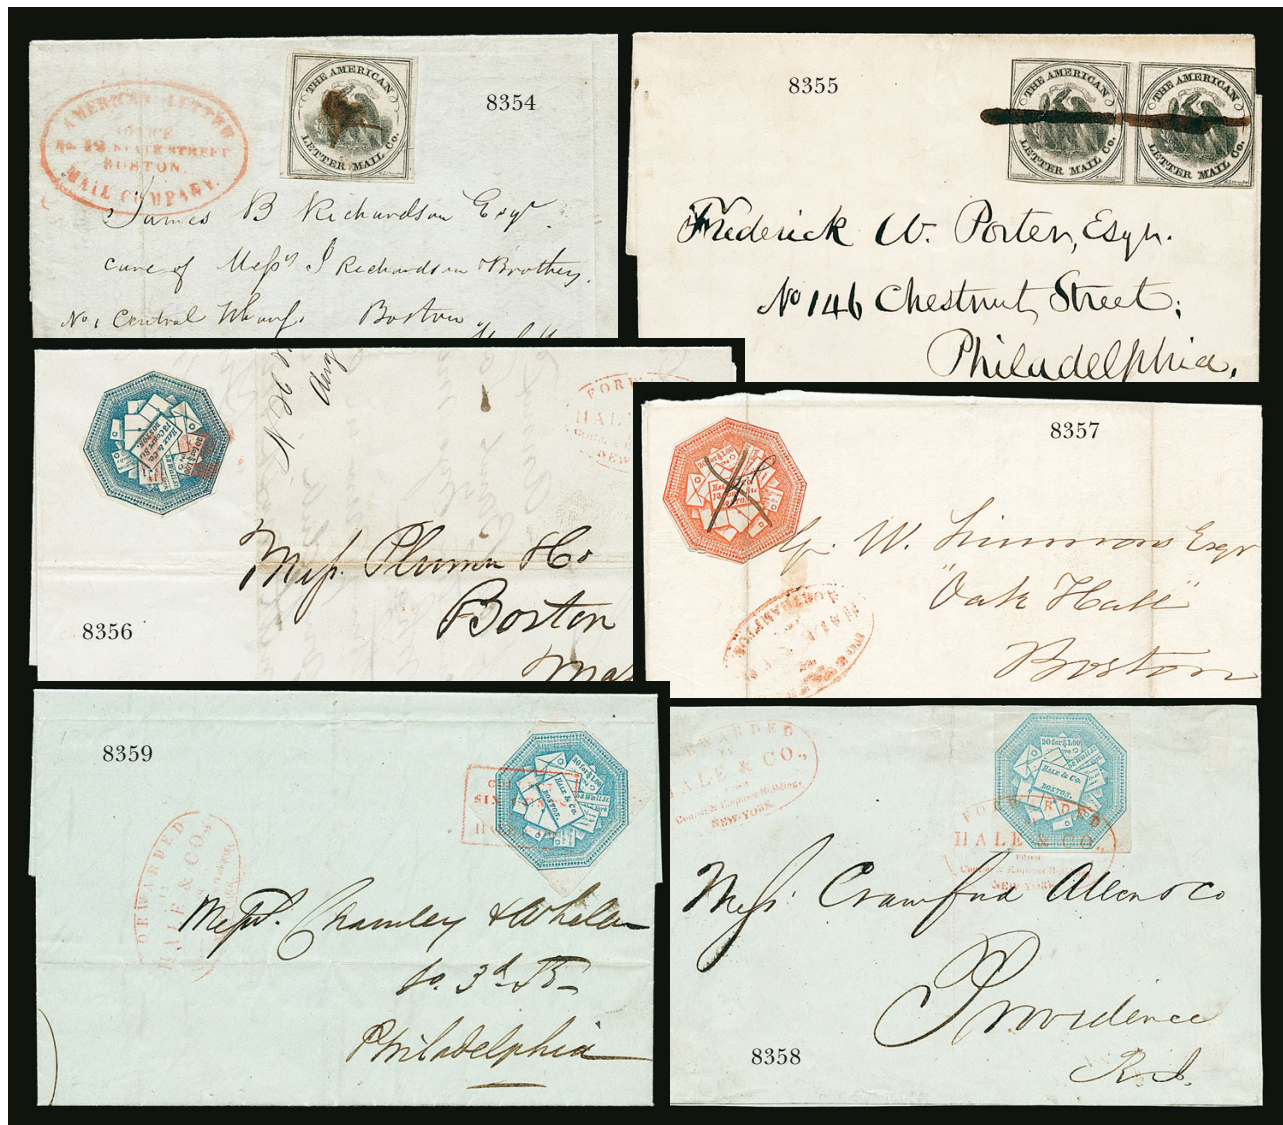 8354
AMERICAN LETTER
OFFICE
STATE STREET
BOSTON.
MAIL COMPANY.
THE AMERICAN
LETTER MAIL Co.
James B Richardson Esqr
care of Messrs J Richardson & Brothers.
No 1 Central Wharf. Boston
8355
THE AMERICAN
LETTER MAIL Co.
THE AMERICAN
LETTER MAIL Co.
Frederick W. Porter, Esqr.
No 146 Chestnut Street;
Philadelphia.
8356
HALE & Co.
13 Court St.
BOSTON.
20 for $1.00
FORW
HALE
NEW
Mess.
Boston
8357
20 for $1.00
W. Simmons Esqr
"Oak Hall"
Boston
FORW
HALE
NORTHAMPTON
8359
20 for $1.00
HALE & Co.
BOSTON.
SIX CENTS
HALE & Co
FORWARDED
BY
HALE & CO.,
Messrs. Charnley & Whelan
So. 3d St
Philadelphia
FORWARDED
BY
HALE & CO.,
FROM
Courier & Enquirer Building,
NEW-YORK.
20 for $1.00
HALE & Co.
BOSTON.
FORWARDED
HALE & CO.,
FROM
Courier & Enquirer Building,
NEW-YORK
Mess. Crawford Allen & Co
Providence
R.I.
8358